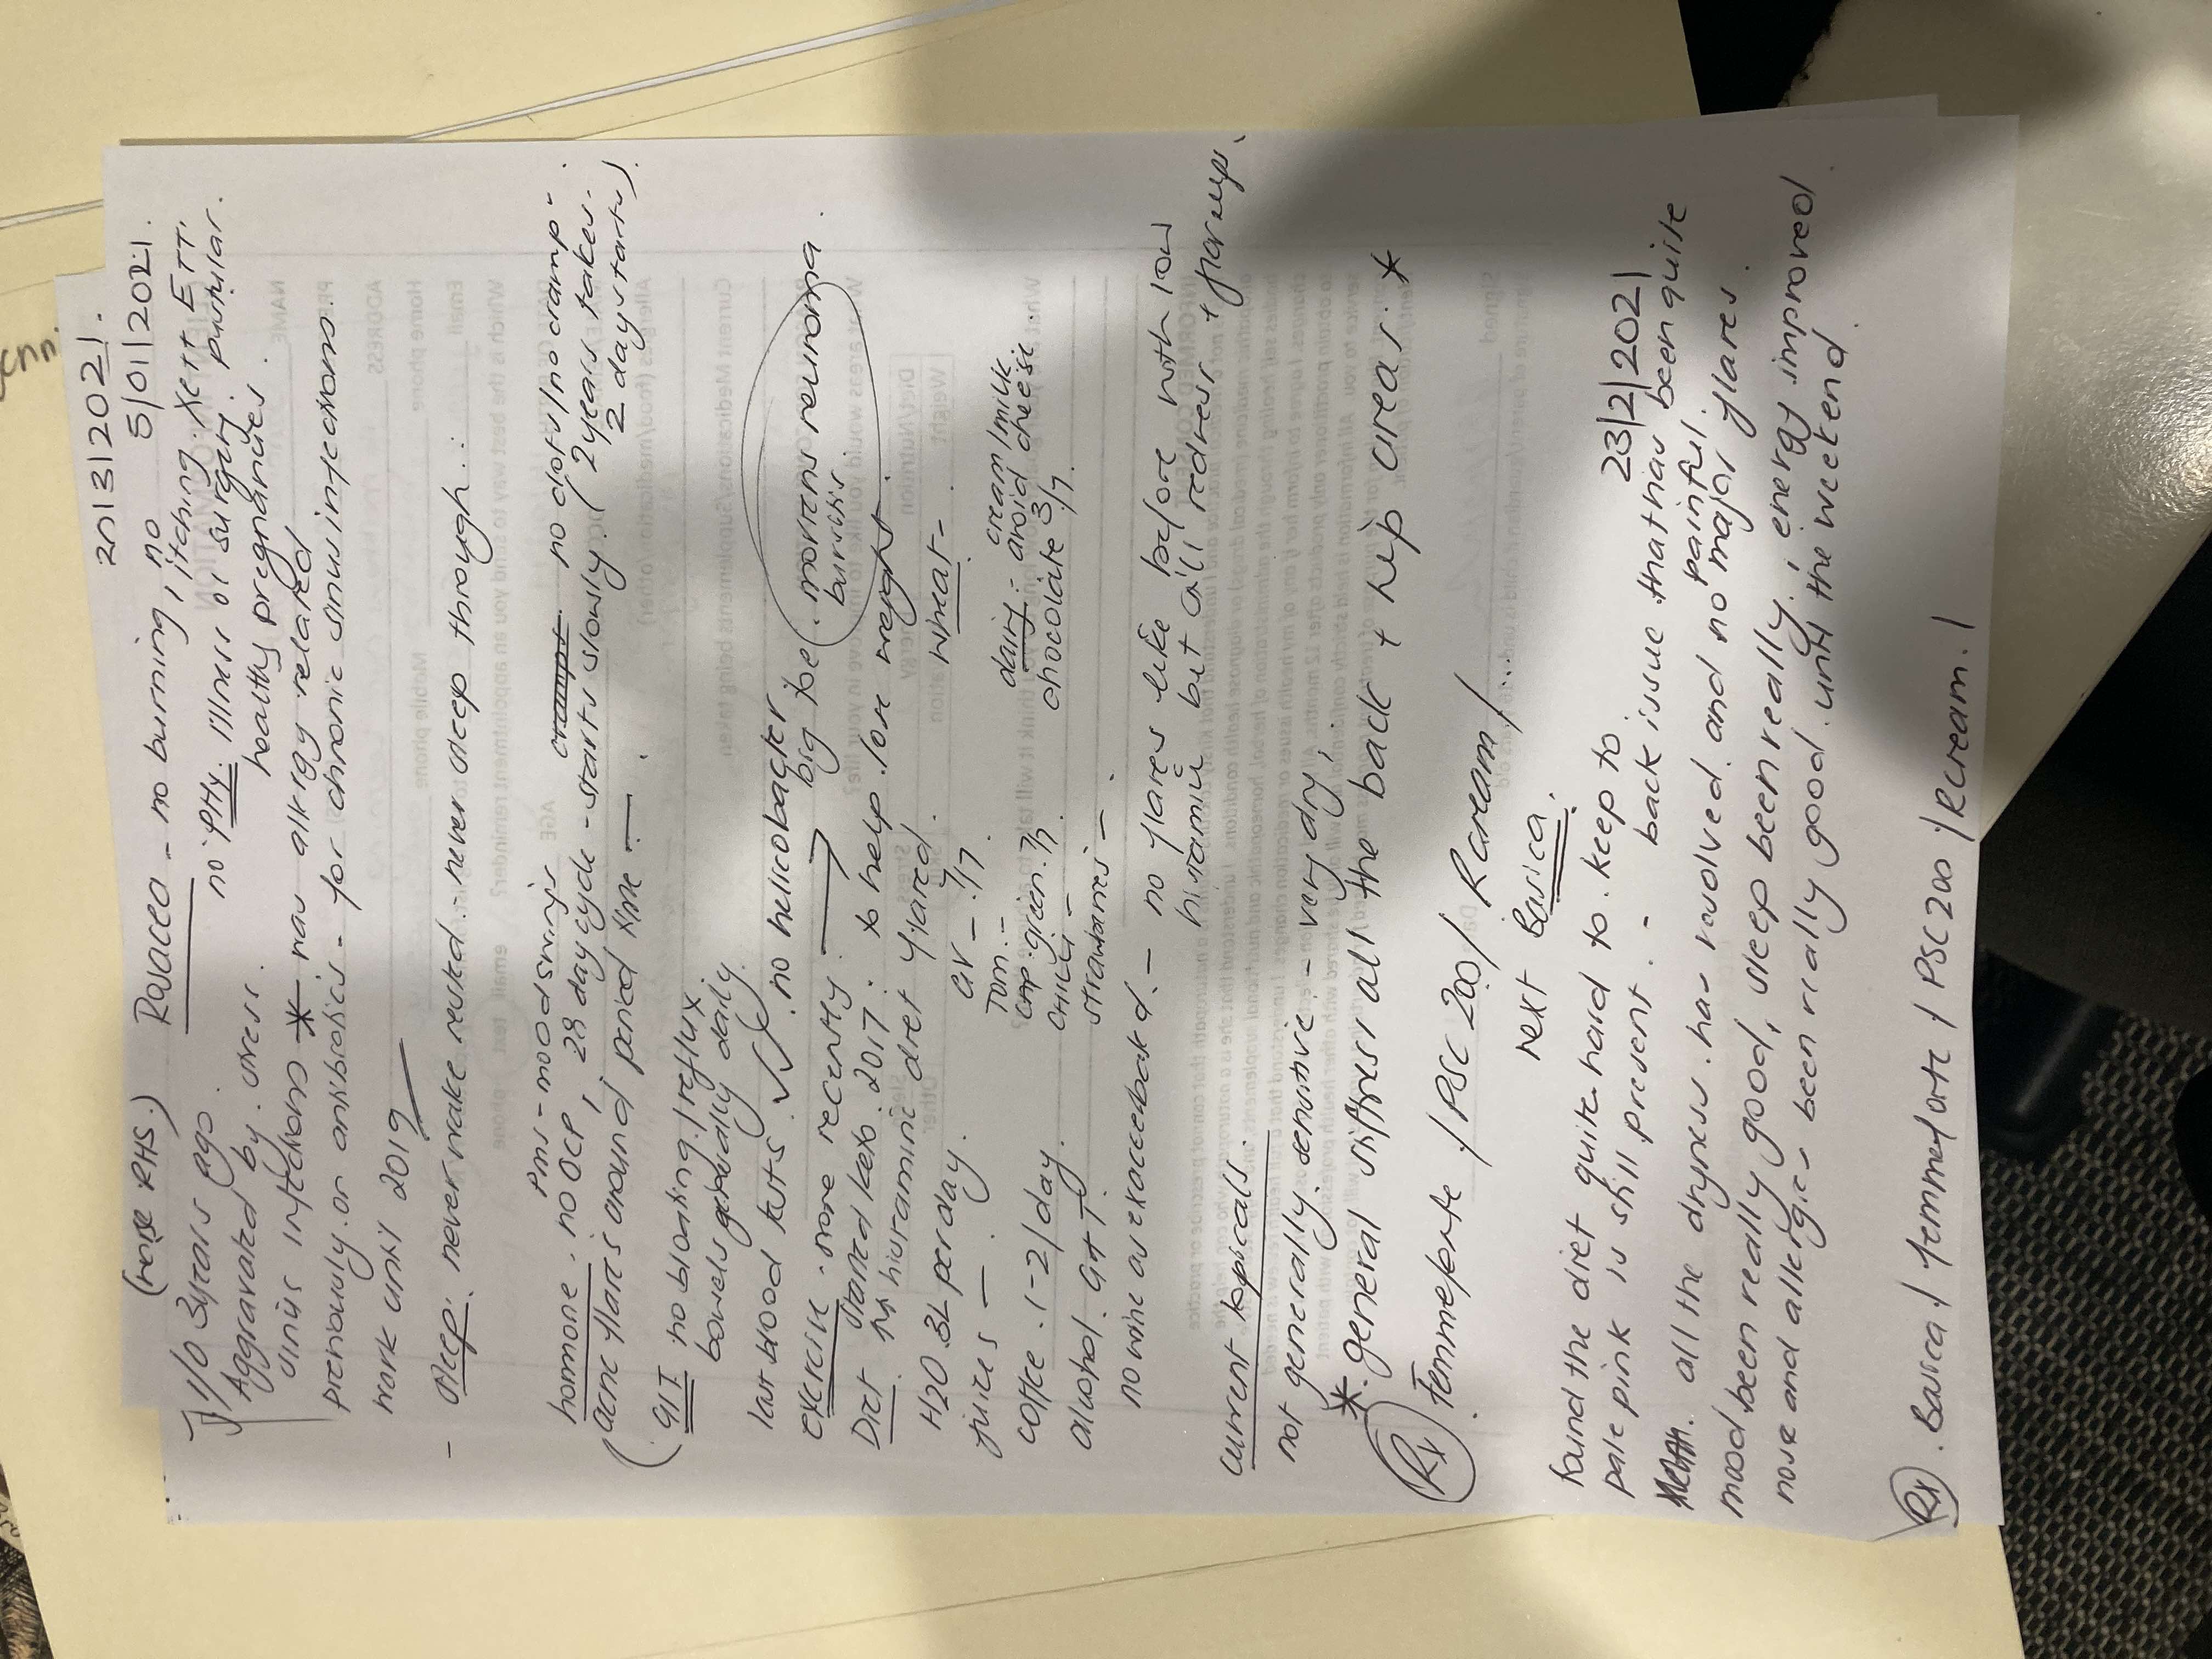 2n13/2021.
5/01/2021.
(nose RHS.) Rosacea - no burning, no itching. Xett ETT.
1/0 3years ago. no PHx. Illness or surgery. pustular.
Aggravated by. stress. healthy pregnancies.
sinus infections * - was allergy related
previously on antibiotics - for chronic sinus infections.
work until 2019
- sleep: never wake rested - never sleep through.
PMS - mood swings
hormone. no OCP, 28 day cycle - starts slowly. no clots/no cramp -
(acne flares around period time - . (2 years takes.
2 days starts)
(GIT no bloating / reflux
bowels generally daily.
last blood tests. ✓✓ no helicobacter
exercise - more recently. big toe (. mortons neuroma
bursitis
Started keto. 2017. to help. lose weight.
Diet. histamine diet flared. wheat -
H2O. 3L per day. GV - 7/7. cream/milk
juices - . Tom. - dairy - avoid cheese.
coffee. 1-2/day cap. green. 7/7. chocolate 3/7.
alcohol. G+T. chilli -
strawberries -
no wine as exacerbated. - no flares like before with low
histamine but all redness + bumps.
current topicals.
not generally. sensitive - very dry,
* general stiffness all the back + hip areas. *
(Rx) Femmeforte / PSC 200 / Rcream / ...
next Basica.
23/2/2021
found the diet quite hard to. keep to.
pale pink is still present. - back issue that has been quite
painful.
all the dryness. has resolved. and no major flares.
mood been really good, sleep been really. energy improved
nose and allergies been really good. until the weekend.
(Rx). Basica. / femmeforte / PSC 200 / Rcream. /